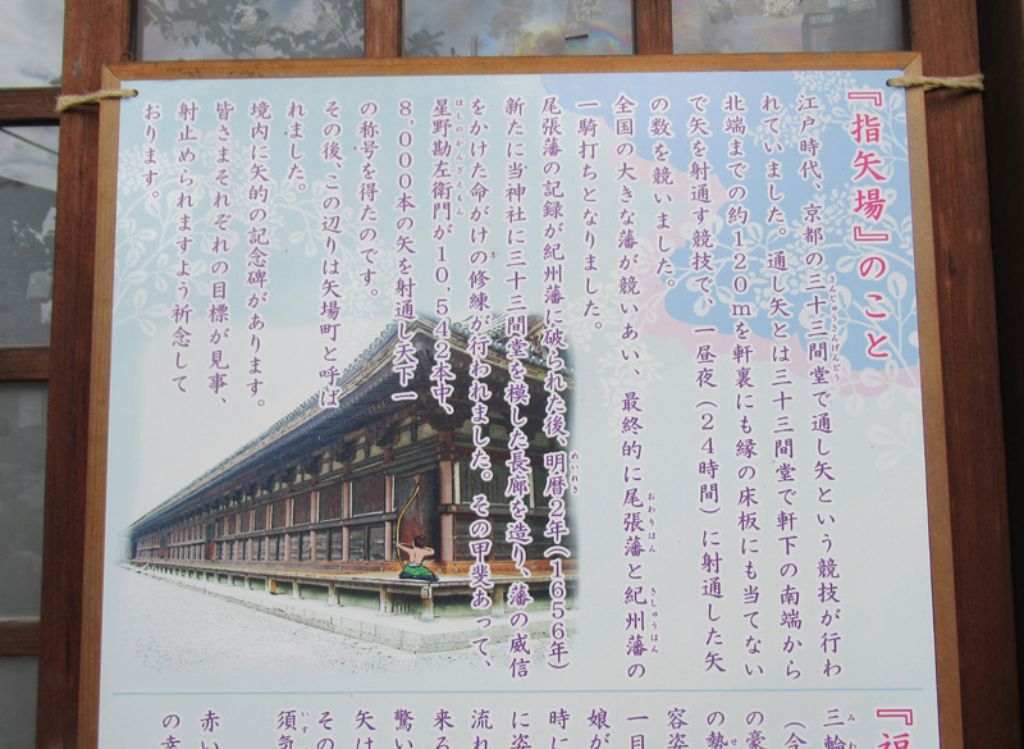 『指矢場』のこと
江戸時代、京都の三十三間堂で通し矢という競技が行わ
さんじゅうさんげんどう
れていました。通し矢とは三十三間堂で軒下の南端から
北端までの約120mを軒裏にも縁の床板にも当てない
で矢を射通す競技で、一昼夜(24時間)に射通した矢
の数を競いました。
全国の大きな藩が競いあい、最終的に尾張藩と紀州藩の
おわりはん
きしゅうはん
一騎打ちとなりました。
尾張藩の記録が紀州藩に破られた後、明暦2年(1656年)
めいれき
新たに当神社に三十三間堂を模した長廊を造り、藩の威信
をかけた命がけの修練が行われました。その甲斐あって、
星野勘左衛門が10,542本中、
ほしのかんざえもん
8,000本の矢を射通し天下一
の称号を得たのです。
その後、この辺りは矢場町と呼ば
れました。
境内に矢的の記念碑があります。
皆さまそれぞれの目標が見事、
射止められますよう祈念して
おります。
『福
三輪
み
(今
の豪
の勢
せ
容姿
一目
娘が
時に
に姿
流れ
来る
驚い
矢は
その
須気
いす
赤い
の幸